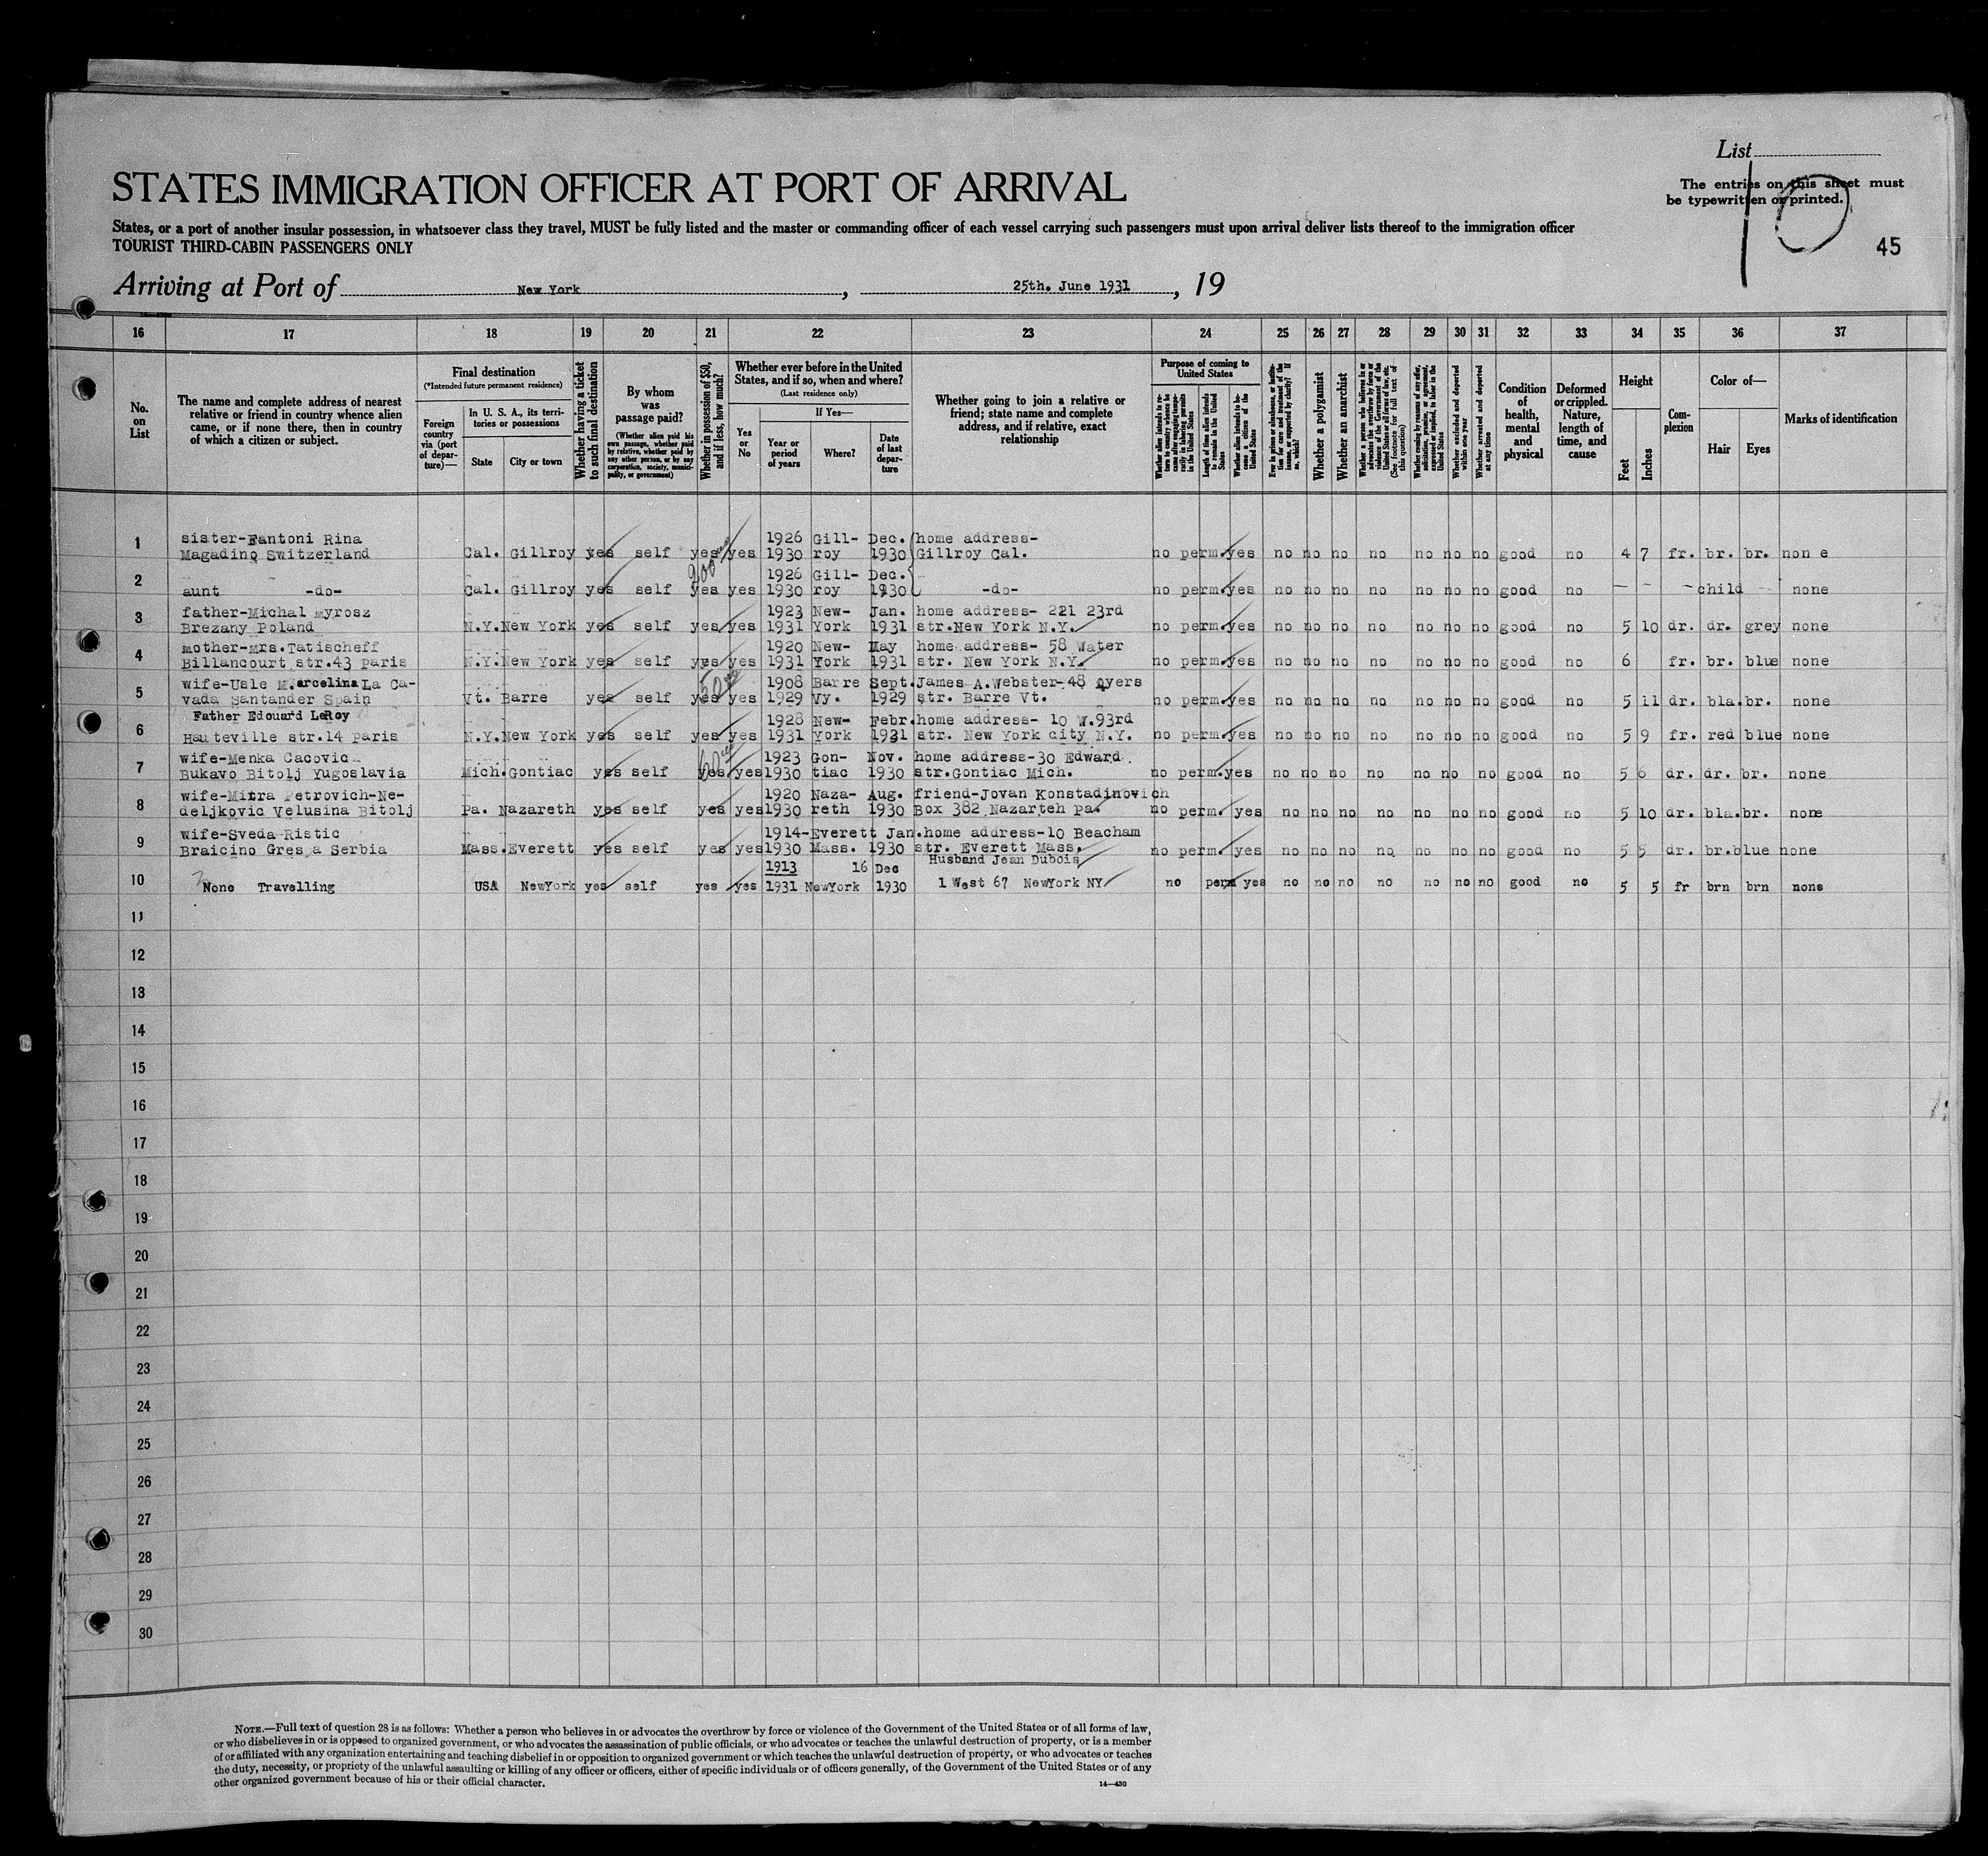 List
STATES IMMIGRATION OFFICER AT PORT OF ARRIVAL
The entries on this sheet must
be typewritten or printed.
10
States, or a port of another insular possession, in whatsoever class they travel, MUST be fully listed and the master or commanding officer of each vessel carrying such passengers must upon arrival deliver lists thereof to the immigration officer
TOURIST THIRD-CABIN PASSENGERS ONLY
45
Arriving at Port of New York, 25th. June 1931, 19
16 17 18 19 20 21 22 23 24 25 26 27 28 29 30 31 32 33 34 35 36 37
No. on List
The name and complete address of nearest relative or friend in country whence alien came, or if none there, then in country of which a citizen or subject.
Final destination
(*Intended future permanent residence)
Foreign country via (port of departure)—
In U. S. A., its territories or possessions
State
City or town
Whether having a ticket to such final destination
By whom was passage paid?
(Whether alien paid his own passage, whether paid by relative, whether paid by any other person, or by any corporation, society, municipality, or government)
Whether in possession of $50, and if less, how much?
Whether ever before in the United States, and if so, when and where?
(Last residence only)
Yes or No
If Yes—
Year or period of years
Where?
Date of last departure
Whether going to join a relative or friend; state name and complete address, and if relative, exact relationship
Purpose of coming to United States
Whether alien intends to return to country whence he came after engaging temporarily in laboring pursuits in the United States
Length of time alien intends to remain in the United States
Whether alien intends to become a citizen of the United States
Ever in prison or almshouse, or institution for care and treatment of the insane, or supported by charity? If so, which?
Whether a polygamist
Whether an anarchist
Whether a person who believes in or advocates the overthrow by force or violence of the Government of the United States or all forms of law, etc. (See footnote for full text of this question)
Whether coming by reason of any offer, solicitation, promise, or agreement, expressed or implied, to labor in the United States
Whether excluded and deported within one year
Whether arrested and deported at any time
Condition of health, mental and physical
Deformed or crippled. Nature, length of time, and cause
Height
Feet
Inches
Complexion
Color of—
Hair
Eyes
Marks of identification
sister-Fantoni Rina 1926 Gill- Dec. home address-
1 Magadino Switzerland Cal. Gillroy yes self yes yes 1930 roy 1930 Gillroy Cal. no perm. yes no no no no no no no good no 4 7 fr. br. br. non e
200
1926 Gill- Dec.
2 aunt -do- Cal. Gillroy yes self yes yes 1930 roy 1930 -do- no perm. yes no no no no no no no good no — - - child none
father-Michal Myrosz 1923 New- Jan. home address- 221 23rd
3 Brezany Poland N.Y. New York yes self yes yes 1931 York 1931 str. New York N.Y. no perm. yes no no no no no no no good no 5 10 dr. dr. grey none
mother-Mrs. Tatischeff 1920 New- May home address- 58 Water
4 Billancourt str.43 Paris N.Y. New York yes self yes yes 1931 York 1931 str. New York N.Y. no perm. yes no no no no no no no good no 6 fr. br. blue none
wife-Usle Marcelina La Ca- 50 1908 Barre Sept. James A.Webster-48 Ayers
5 vada Santander Spain Vt. Barre yes self yes yes 1929 Vy. 1929 str. Barre Vt. no perm. yes no no no no no no no good no 5 11 dr. bla. br. none
Father Edouard LeRoy 1928 New- Febr. home address- 10 W.93rd
6 Hauteville str.14 Paris N.Y. New York yes self yes yes 1931 York 1931 str. New York city N.Y. no perm. yes no no no no no no no good no 5 9 fr. red blue none
wife-Menka Cacovic 60 1923 Gon- Nov. home address-30 Edward
7 Bukavo Bitolj Yugoslavia Mich. Gontiac yes self yes yes 1930 tiac 1930 str. Gontiac Mich. no perm. yes no no no no no no no good no 5 6 dr. dr. br. none
wife-Mitra Petrovich-Ne- 1920 Naza- Aug. friend-Jovan Konstadinovich
8 deljkovic Velusina Bitolj Pa. Nazareth yes self yes yes 1930 reth 1930 Box 382 Nazarteh Pa. no perm. yes no no no no no no no good no 5 10 dr. bla. br. none
wife-Sveda Ristic 1914- Everett Jan. home address-10 Beacham
9 Braicino Gres a Serbia Mass. Everett yes self yes yes 1930 Mass. 1930 str. Everett Mass. no perm. yes no no no no no no no good no 5 5 dr. br. blue none
1913 16 Dec Husband Jean Dubois
10 None Travelling USA NewYork yes self yes yes 1931 NewYork 1930 1 West 67 NewYork NY no perm yes no no no no no no no good no 5 5 fr brn brn none
11
12
13
14
15
16
17
18
19
20
21
22
23
24
25
26
27
28
29
30
NOTE.—Full text of question 28 is as follows: Whether a person who believes in or advocates the overthrow by force or violence of the Government of the United States or of all forms of law,
or who disbelieves in or is opposed to organized government, or who advocates the assassination of public officials, or who advocates or teaches the unlawful destruction of property, or is a member
of or affiliated with any organization entertaining and teaching disbelief in or opposition to organized government or which teaches the unlawful destruction of property, or who advocates or teaches
the duty, necessity, or propriety of the unlawful assaulting or killing of any officer or officers, either of specific individuals or of officers generally, of the Government of the United States or of any
other organized government because of his or their official character.
14—430